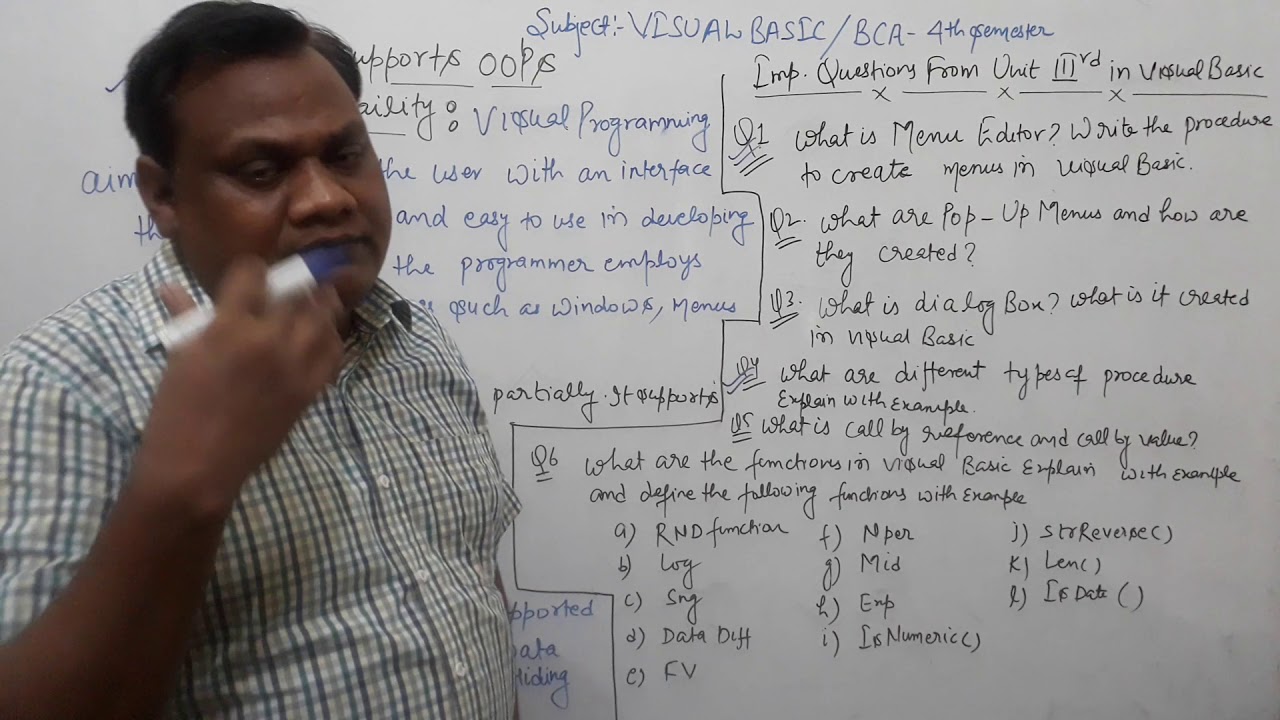 Subject:- VISUAL BASIC / BCA- 4th semester
upports OOPs
aility: Visual Programming
aim the user with an interface
th and easy to use in developing
the programmer employs
such as windows, Menus
partially. It supports
pported
Data
Hiding
Imp. Questions From Unit IIIrd in Visual Basic
Q1 What is Menu Editor? Write the procedure
to create menus in visual Basic.
Q2. What are Pop-Up Menus and how are
they created?
Q3. What is dialog Box? What is it created
in visual Basic
Q4 What are different types of procedure
Explain with Example.
Q5 What is call by reference and call by value?
Q6 What are the functions in Visual Basic Explain with example
and define the following functions with Example
a) RND function
b) Log
c) Sng
d) Data Diff
e) FV
f) Nper
g) Mid
h) Exp
i) IsNumeric()
j) StrReverse()
k) Len()
l) IsDate()